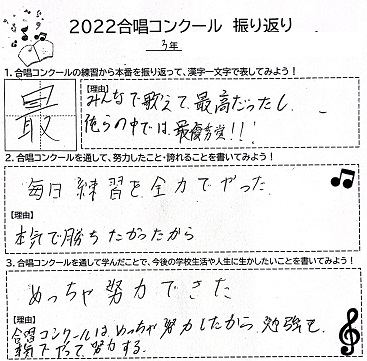 2022合唱コンクール 振り返り
3年
1. 合唱コンクールの練習から本番を振り返って、漢字一文字で表してみよう！
最
【理由】
みんなで歌えて、最高だったし、
俺らの中では、最優秀賞!!!
2. 合唱コンクールを通して、努力したこと・誇れることを書いてみよう！
毎日練習を全力でやった
【理由】
本気で勝ちたかったから
3. 合唱コンクールを通して学んだことで、今後の学校生活や人生に生かしたいことを書いてみよう！
めっちゃ努力できた
【理由】
合唱コンクールは、めっちゃ努力したから、勉強も、
やって、努力する。